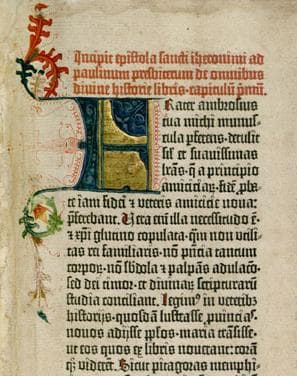 Incipit epistola sancti iheronimi ad
paulinum presbiterum de omnibus
divine historie libris. capitulū pmū.
Frater ambrosius
tua michi munus-
cula pferens. detulit
sil et suavissimas
lrās. q̄ a principio
amiciciarū. fidē pba-
te iam fidei et veteris amicicie nova:
pferebant. Vera enī illa necessitudo ē.
et xp̄i glutino copulata. qm̄ non utili-
tas rei familiaris. nō pn̄cia tantum
corporū. nō sb̄dola et palpās adulacō.
sed dei timor. et divinarū scripturarū
studia conciliant. Legim⁹ in veterib⁹
historijs. quosdā lustrasse puincias.
novos adijsse pp̄los. maria trāsisse.
ut eos quos ex libris noverant: corā
q̄z viderēt. Sicut pitagoras memphi-